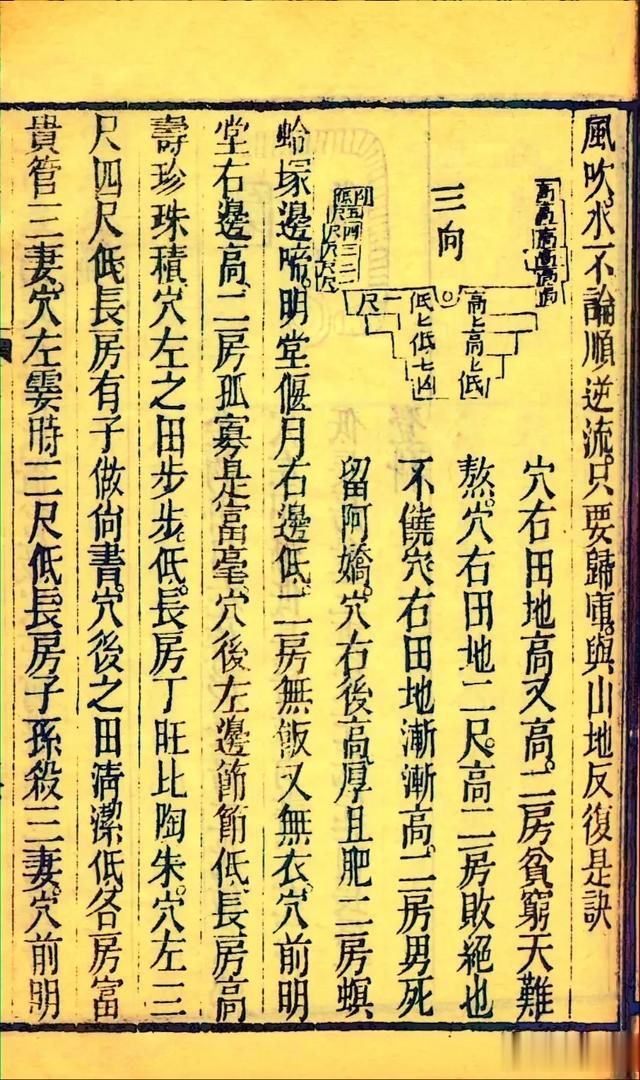 風吹。水不論順逆流。只要歸庫。與山地反復是訣
高高高高高高
三向
高匕高匕低
低匕低匕凶
尺
穴右田地高又高。二房貧窮天難
熬。穴右田地二尺高二房敗絕也
不饒穴右田地漸漸高。二房男死
留阿嬌。穴右後高厚且肥二房螟
蛉塚邊啼。明堂偃月右邊低。二房無飯又無衣。穴前明
堂右邊高。二房孤寡是富毫。穴後左邊節節低長房高
壽珍珠積。穴左之田步步低。長房丁旺比陶朱。穴左三
尺四尺低長房有子做尙書。穴後之田清潔低各房富
貴管三妻。穴左霎時三尺低。長房子孫殺三妻。穴前明